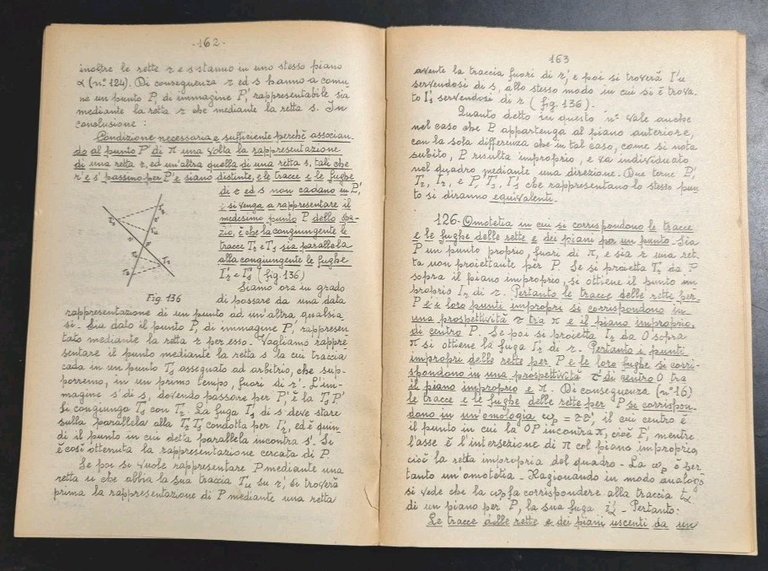 - 162 -
inoltre le rette r e s stanno in uno stesso piano
α (n° 124). Di conseguenza r ed s hanno a comu
ne un punto P, di immagine P', rappresentabile sia
mediante la retta r che mediante la retta s. In
conclusione:
Condizione necessaria e sufficiente perchè associan
do al punto P' di π una volta la rappresentazione
di una retta r, ed un'altra quella di una retta s, tali che
r' e s' passino per P' e siano distinte, e le tracce e le fughe
di r ed s non cadano in P',
è si venga a rappresentare il
medesimo punto P dello spa-
zio, è che la congiungente le
tracce Tr e Ts sia parallela
alla congiungente le fughe
I'r e I's (fig. 136)
Fig. 136
Siamo ora in grado
di passare da una data
rappresentazione di un punto ad un'altra qualsia
si. Sia dato il punto P, di immagine P', rappresen
tato mediante la retta r per esso. Vogliamo rappre
sentare il punto mediante la retta s la cui traccia
cada in un punto Ts assegnato ad arbitrio, che sup-
porremo, in un primo tempo, fuori di r'. L'im-
magine s' di s, dovendo passare per P', è la Ts P'
Si congiunga Ts con Tr. La fuga I's di s deve stare
sulla parallela alla Tr Ts condotta per I'r, ed è quin-
di il punto in cui detta parallela incontra s'. Si
è così ottenuta la rappresentazione cercata di P.
Se poi si vuole rappresentare P mediante una
retta u che abbia la sua traccia Tu su r', si troverà
prima la rappresentazione di P mediante una retta
163
avente la traccia fuori di r', e poi si troverà I'u
servendosi di s, allo stesso modo in cui si è trova-
to I's servendosi di r (fig. 136).
Quanto detto in questo n° vale anche
nel caso che P appartenga al piano anteriore,
con la sola differenza che in tal caso, come si nota
subito, P risulta improprio, e va individuato
nel quadro mediante una direzione. Due terne P',
Tr, I'r, e P', Ts, I's che rappresentano lo stesso pun
to si diranno equivalenti.
126- Omotetia in cui si corrispondono le tracce
e le fughe delle rette e dei piani per un punto. Sia
P un punto proprio, fuori di π, e sia r una ret
ta, non proiettante per P. Se si proietta Tr da P
sopra il piano improprio, si ottiene il punto im
proprio Ir di r. Pertanto le tracce delle rette per
P e i loro punti impropri si corrispondono in
una prospettività τ tra π e il piano improprio,
di centro P. Se poi si proietta Ir da O sopra
π si ottiene la fuga I'r di r. Pertanto i punti
impropri delle rette per P e le loro fughe si corri-
spondono in una prospettività τ' di centro O tra
il piano improprio e π. Di conseguenza (n° 16)
le tracce e le fughe delle rette per P si corrispon-
dono in un'omologia ωp = ττ' il cui centro è
il punto in cui la OP incontra π, cioè P', mentre
l'asse è l'intersezione di π col piano improprio,
cioè la retta impropria del quadro - La ωp è per-
tanto un'omotetia - Ragionando in modo analogo
si vede che la ωp fa corrispondere alla traccia tα
di un piano per P, la sua fuga i'α - Pertanto:
Le tracce delle rette e dei piani uscenti da un